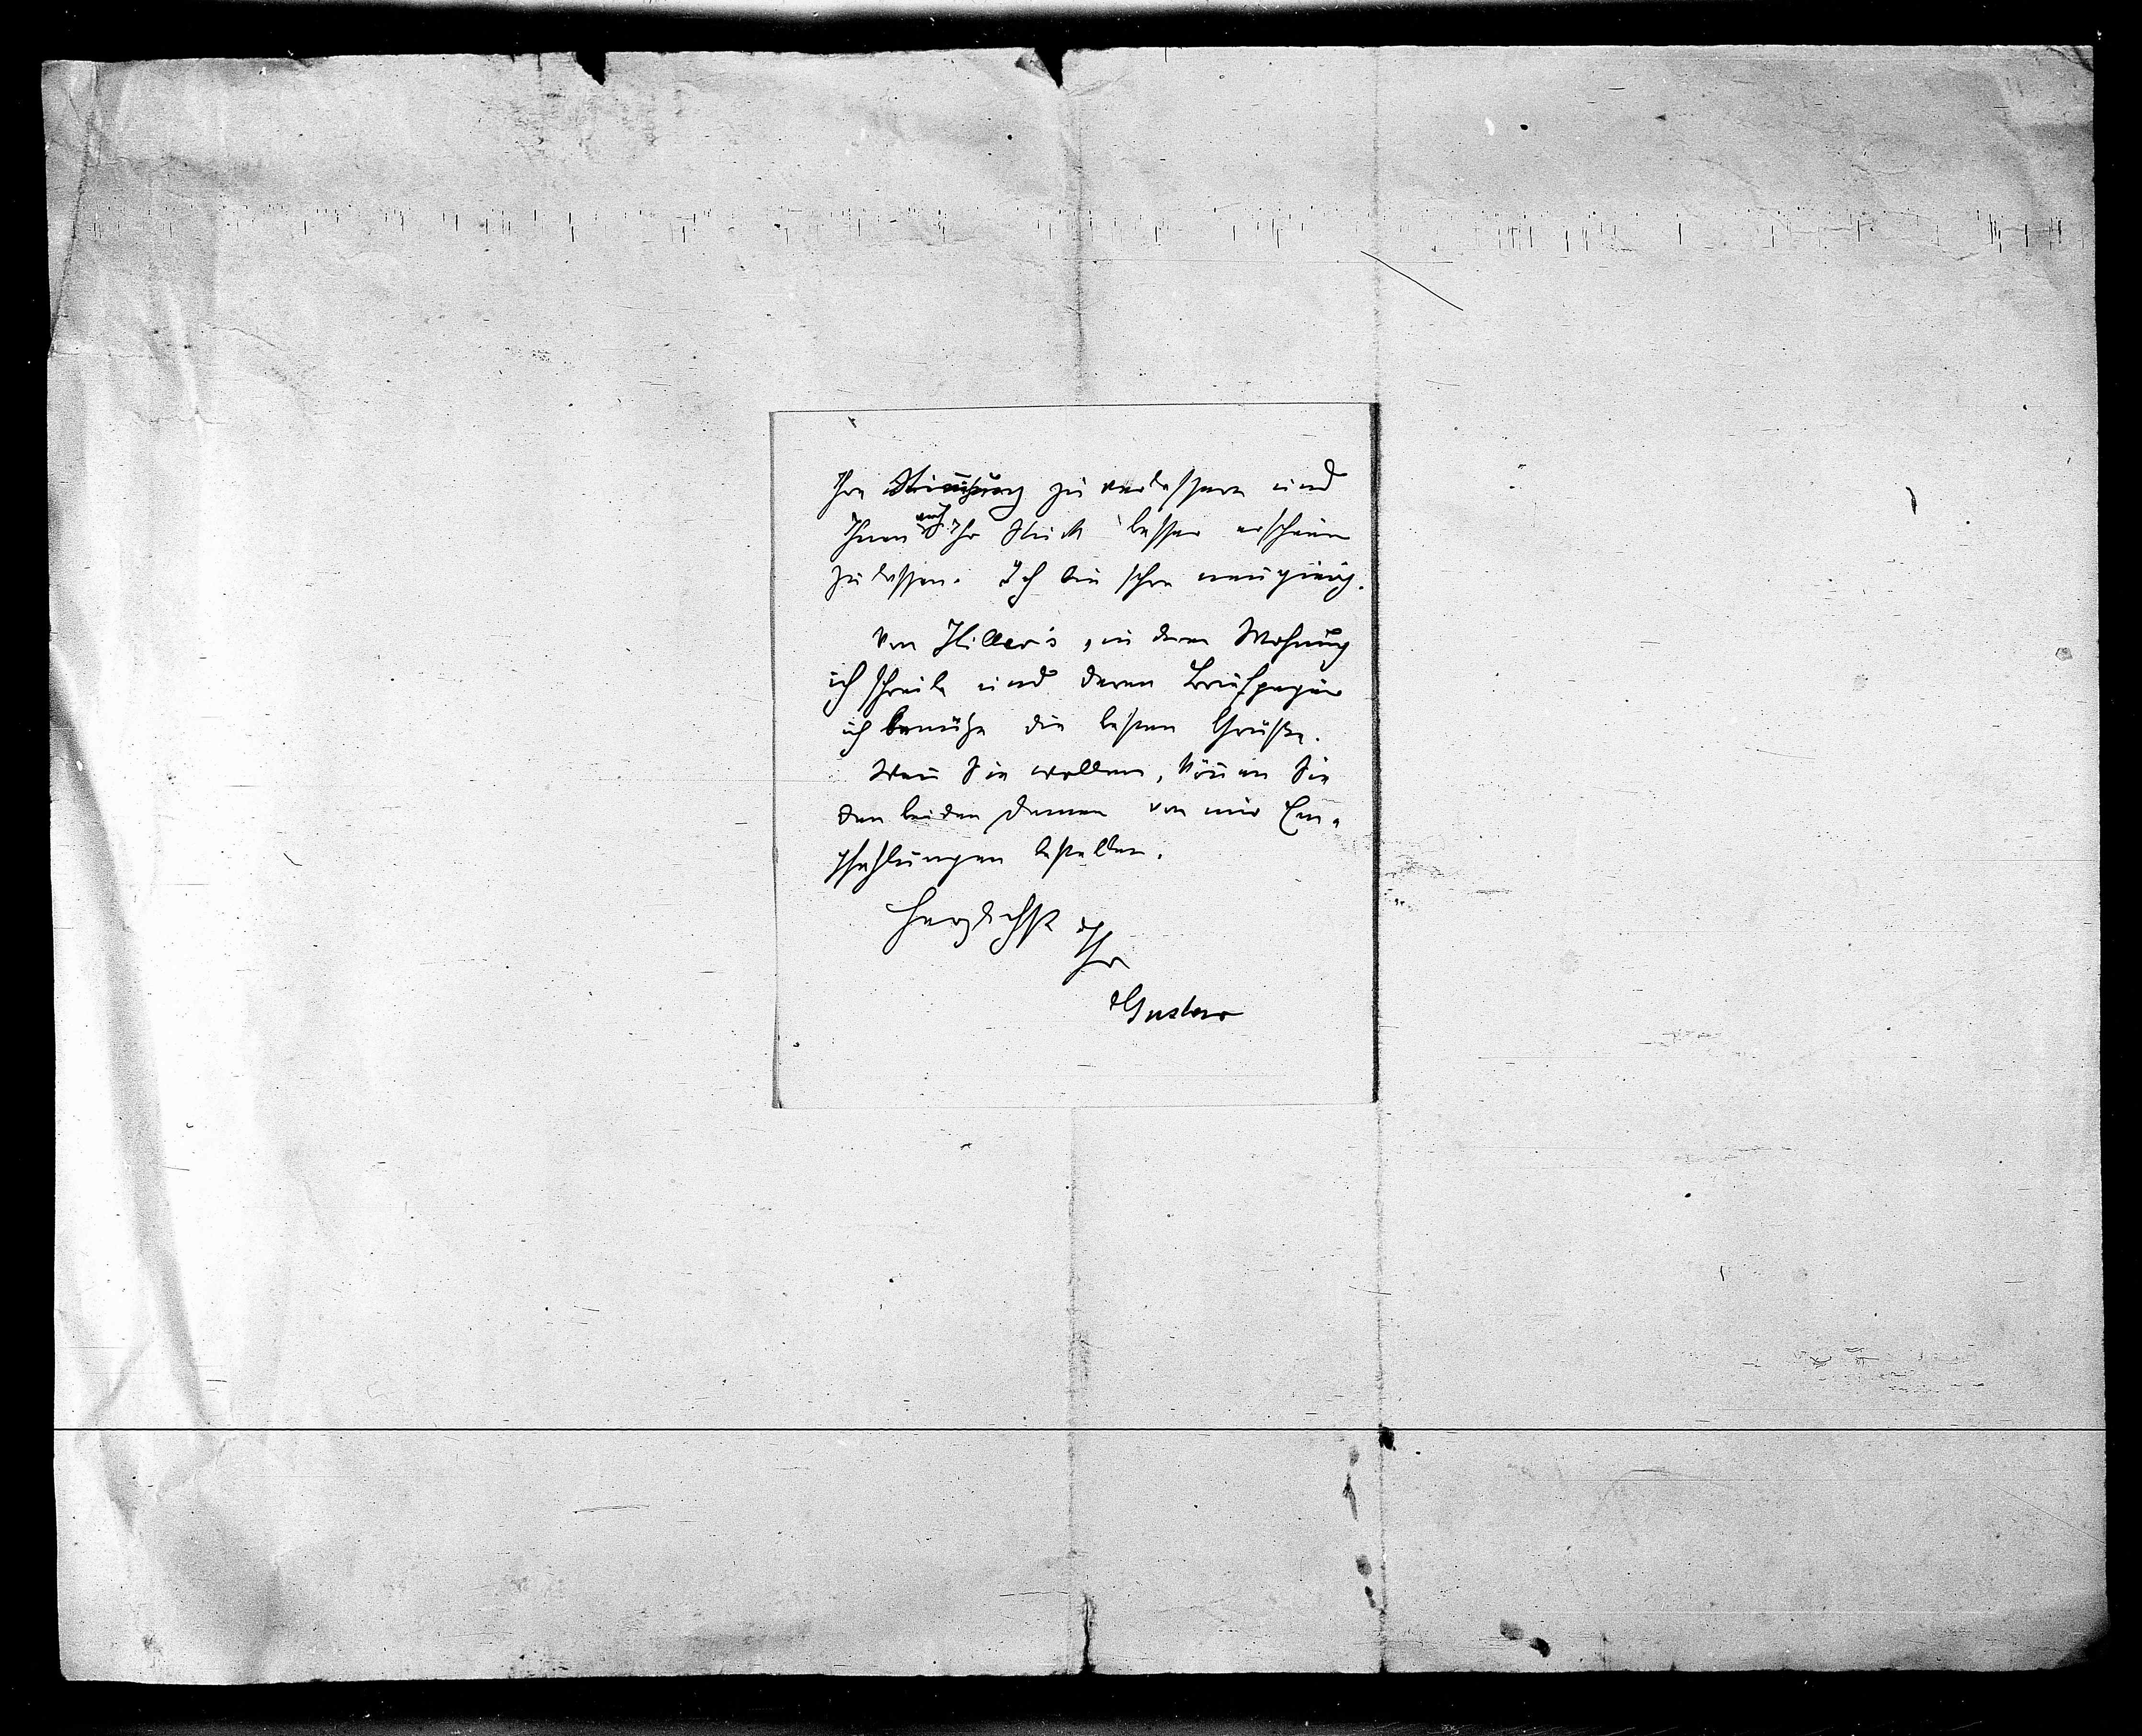 Ihre Stim̄ung zu verbessern und
Ihnen auch Ihr Stück besser erscheinen
zu lassen. Ich bin schon neugierig.
Von Hiller's, in deren Wohnung
ich schreibe und deren Briefpapier
ich benütze die besten Grüße.
Wen̄ Sie wollen, kön̄en Sie
den beiden Damen von mir Em-
pfehlungen bestellen.
Herzlichst
Ihr
Gustav